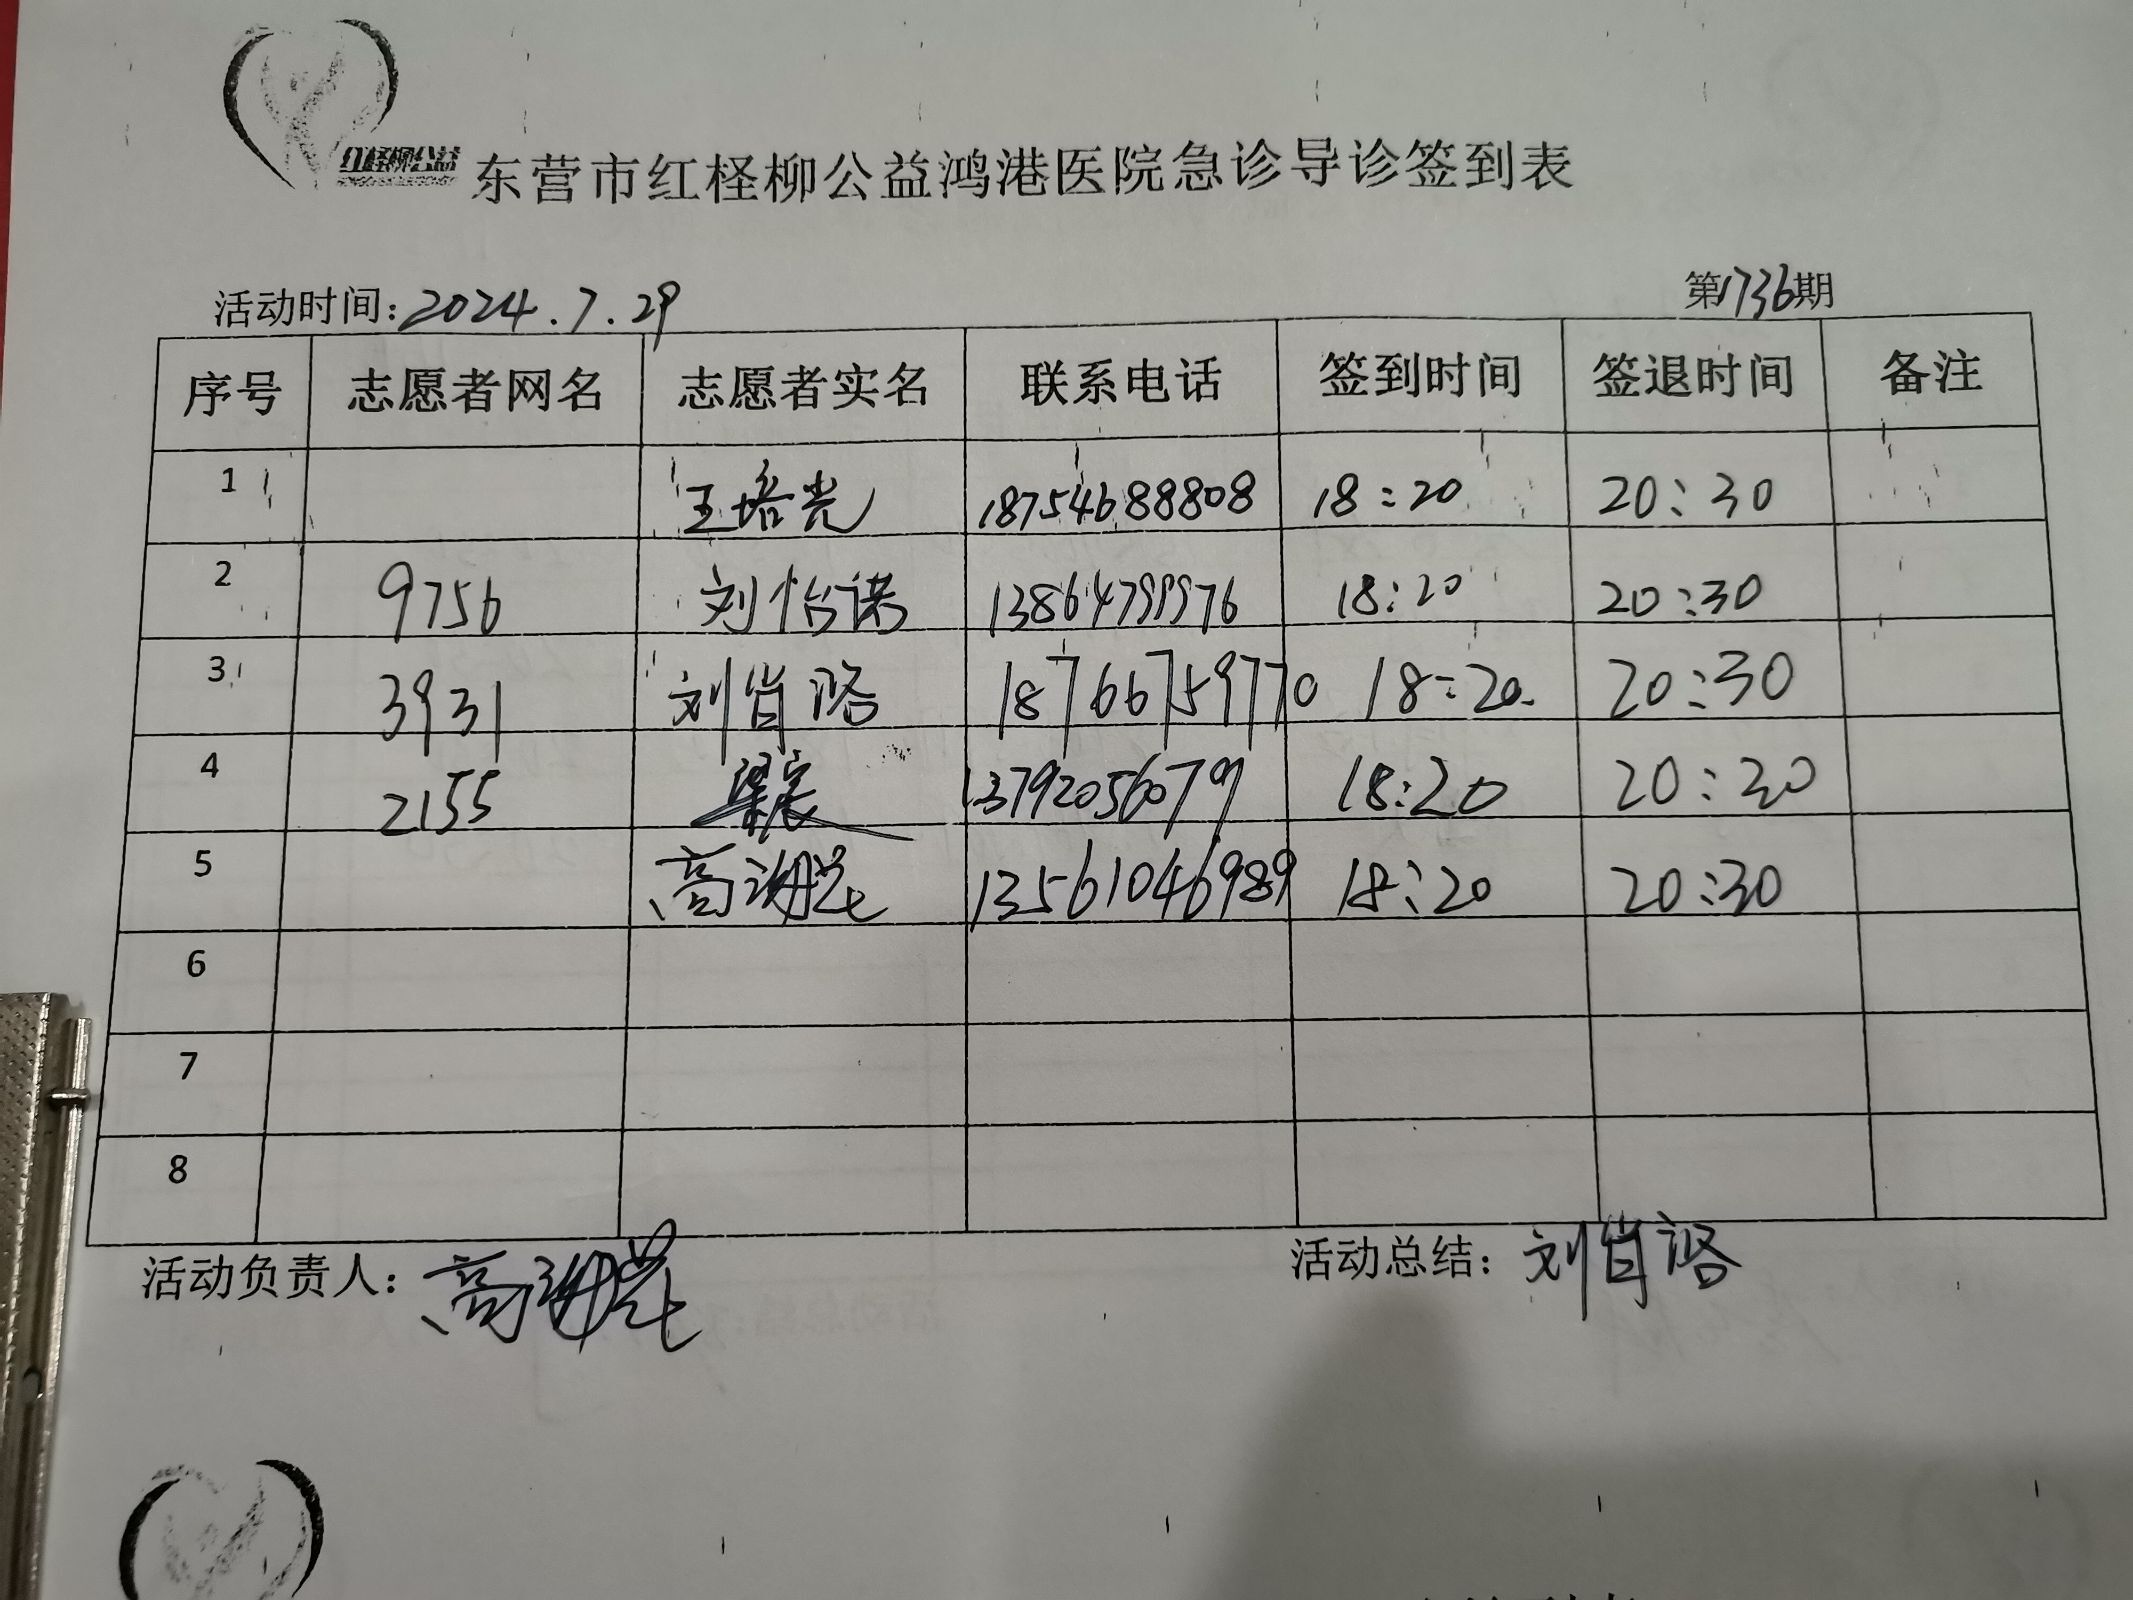 红柽柳公益
东营市红柽柳公益鸿港医院急诊导诊签到表
活动时间:2024.7.29 第1736期
序号 志愿者网名 志愿者实名 联系电话 签到时间 签退时间 备注
1 王培光 18754688808 18:20 20:30
2 9756 刘怡诺 13864799976 18:20 20:30
3 3931 刘肖 18766759770 18:20 20:30
4 2155 13792056079 18:20 20:30
5 高 13561046989 18:20 20:30
6
7
8
活动负责人:高 活动总结:刘肖